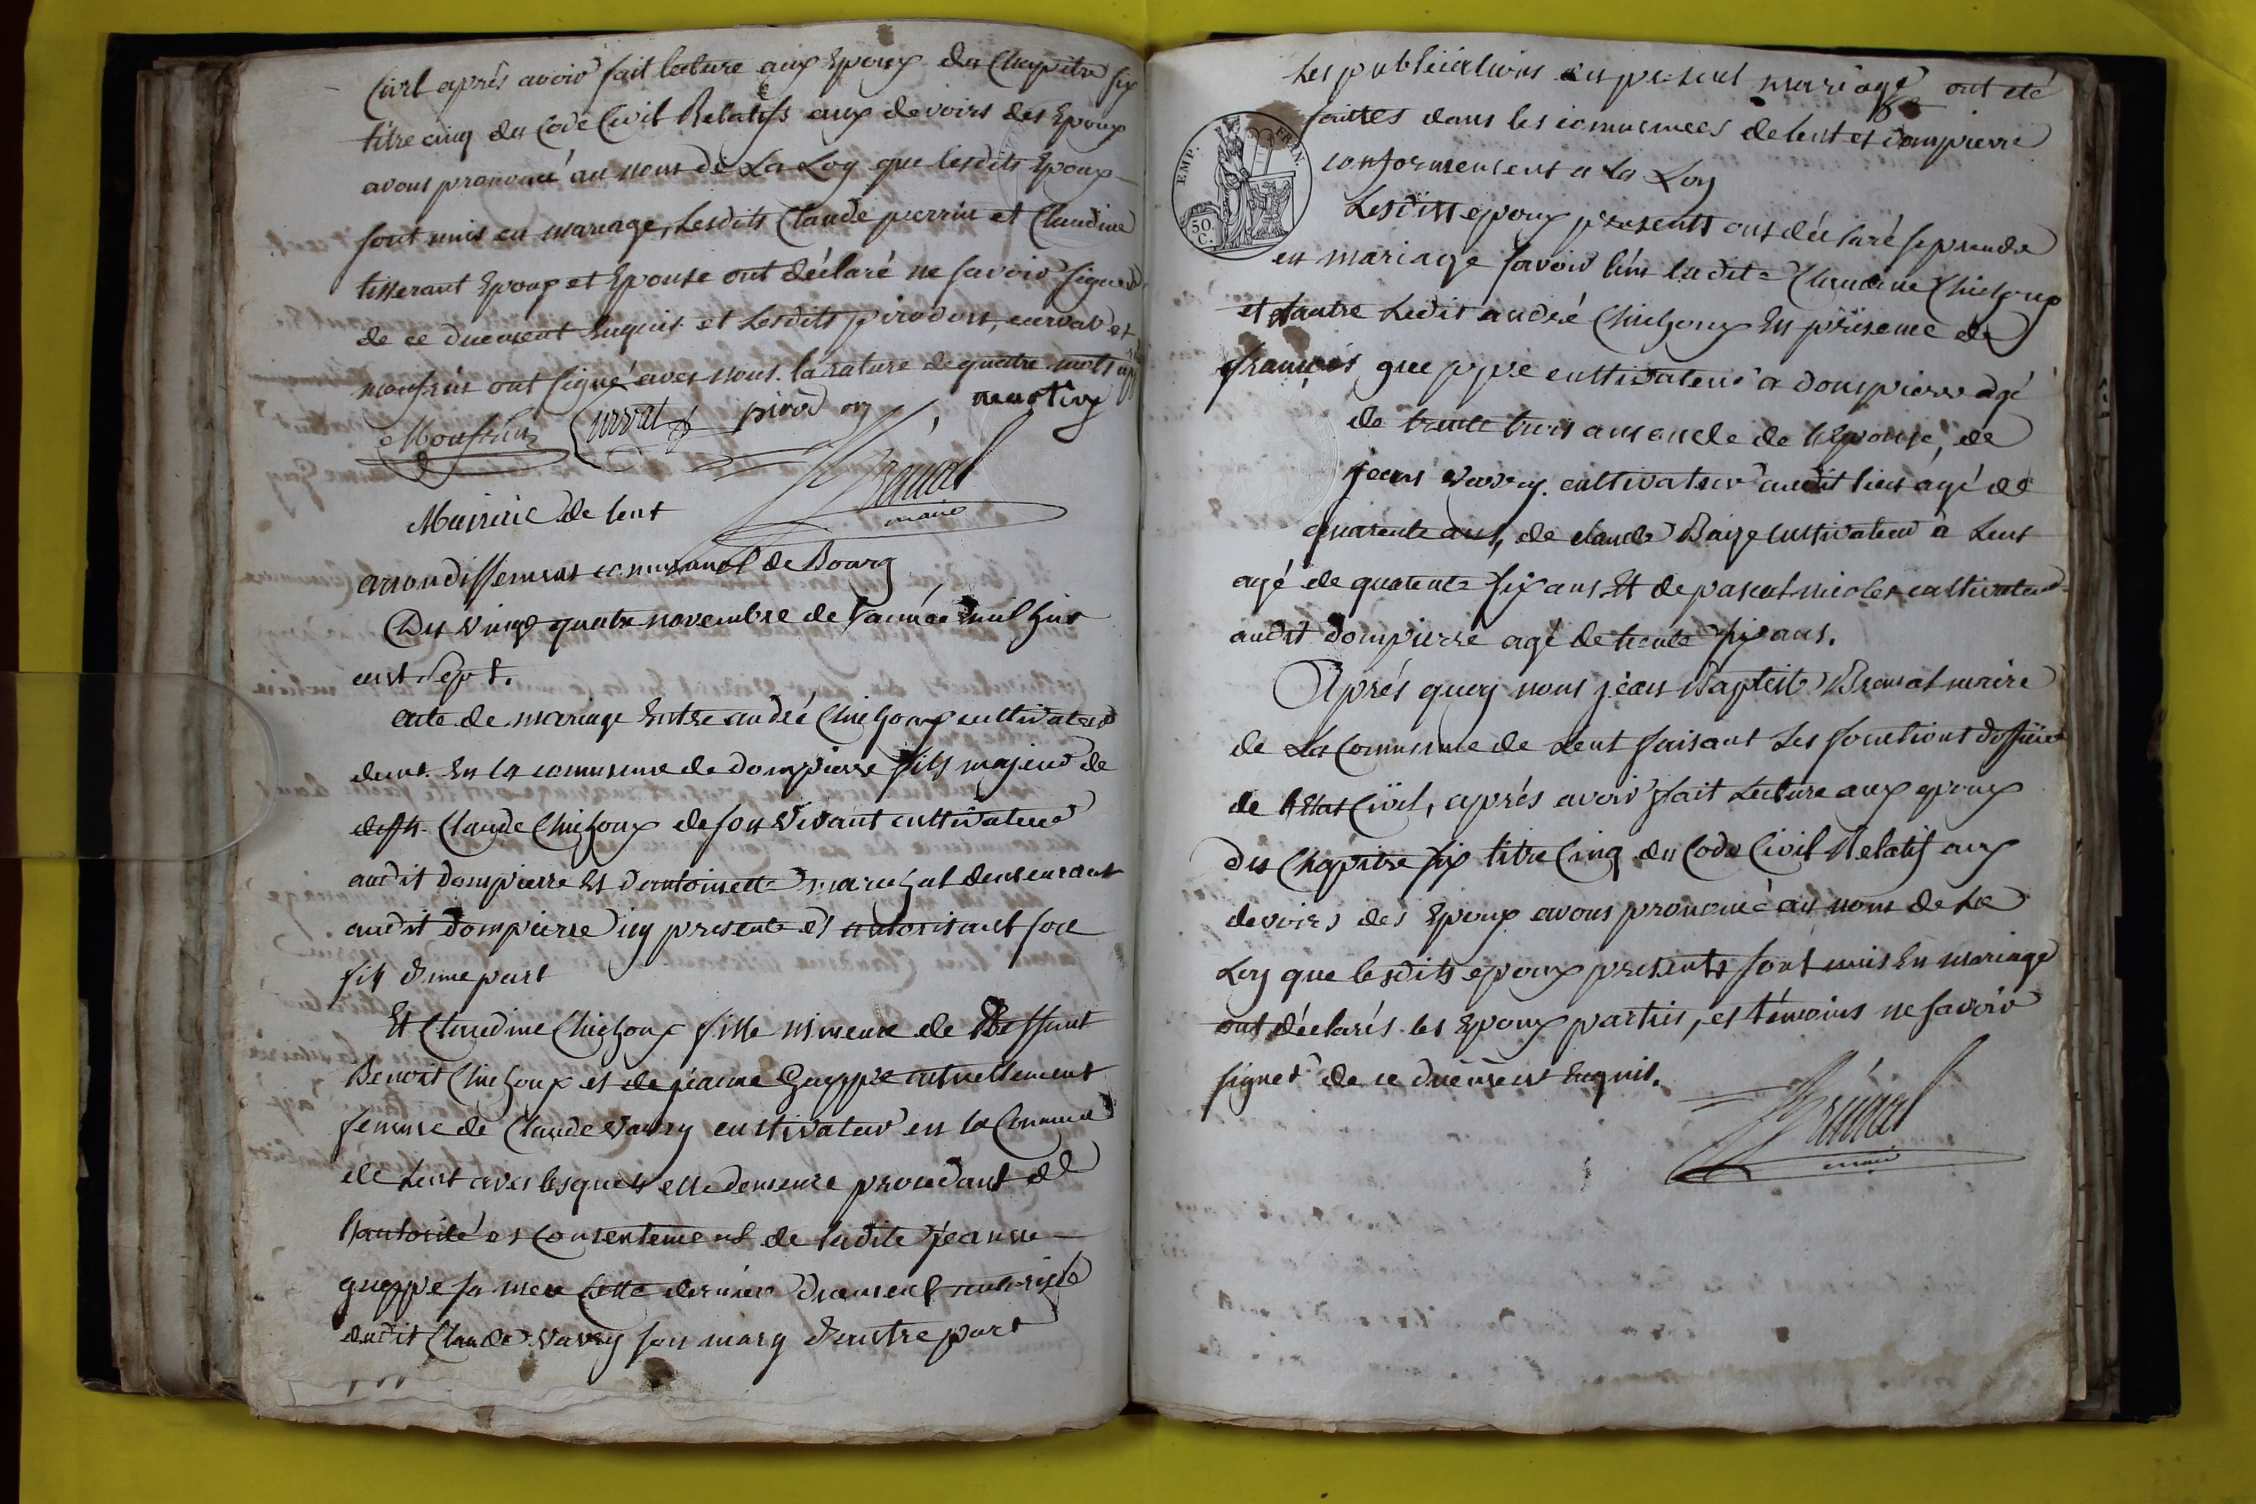 Civil aprés avoir fait lecture aux Epoux du Chapitre six
titre cinq du Code Civil Relatifs aux devoirs des Epoux
avons prononcé au nom de La Loy que lesdits Epoux
sont unis en mariage, Lesdits Claude perrin et Claudine
tisserant Epoux et Epouse ont déclaré ne savoir signer
de ce duement Enquis et Lesdits pirodon, curvat et
monfrin ont signé avec nous. la rature de quatre mots
Monfrin Curvat pirodon
Brunat
maire
Mairie de lent
arrondissement communal de Bourg
Du vingt quatre novembre de l'année mil huit
cent sept.
acte de mariage Entre andré Chichoux cultivateur
demt. En la commune de dompierre fils majeur de
defft. Claude Chichoux de son vivant cultivateur
audit dompierre Et d'antoinette marechal demeurant
audit dompierre icy presente et autorisant son
fils d'une part
Et Claudine Chichoux fille mineure de Deffunt
Benoit Chichoux et de jeanne Gueppe actuellement
femme de Claude vavry cultivateur en la Commune
de Lent avec lesquels elle demeure procedant de
l'autorité et Consentement de ladite jeanne
gueppe sa mere Cette derniere duement autorisée
dudit Claude vavry son mary d'autre part
Les publications du present mariage ont eté
faittes dans les communes de lent et dompierre
conformement a la Loy
EMP. FRAN.
50. C.
Lesdits epoux presents ont déclaré se prendre
en mariage savoir l'un ladite Claudine Chichoux
et l'autre Ledit andré Chichoux En présence de
françois gueppe cultivateur a dompierre agé
de trente trois ans oncle de l'Epouse, de
jean vavry cultivateur audit lieu agé de
quarente ans, de claude Baize cultivateur à Lent
agé de quarente six ans Et de pascal nicolet cultivateur
audit dompierre agé de trente six ans.
Aprés quoy nous jéan Baptiste Brunat maire
de La Commune de Lent faisant Les fonctions d'officier
de l'Etat Civil, aprés avoir fait Lecture aux epoux
du Chapitre six titre Cinq du Code Civil Relatif aux
devoirs des Epoux avons prononcé au nom de La
Loy que lesdits epoux presents sont unis En mariage
ont déclarés les Epoux parties, et témoins ne savoir
signer de ce duement Enquis.
Brunat
maire